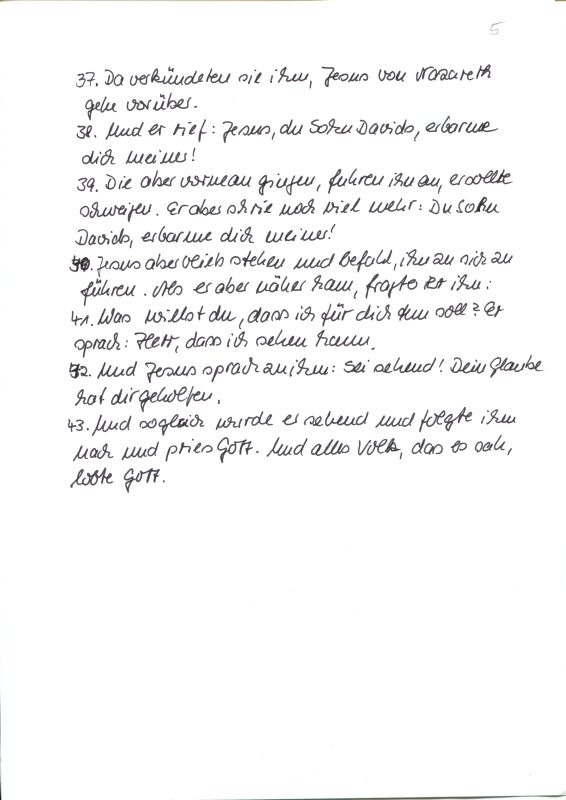 5
37. Da verkündeten sie ihm, Jesus von Nazareth
gehe vorüber.
38. Und er rief: Jesus, du Sohn Davids, erbarme
dich meiner!
39. Die aber vornean gingen, fuhren ihn an, er sollte
schweigen. Er aber schrie noch viel mehr: Du Sohn
Davids, erbarme dich meiner!
40. Jesus aber blieb stehen und befahl, ihn an sich zu
führen. Als er aber näher kam, fragte er ihn:
41. Was willst du, dass ich für dich tun soll? Er
sprach: Herr, dass ich sehen kann.
42. Und Jesus sprach zu ihm: Sei sehend! Dein Glaube
hat dir geholfen.
43. Und sogleich wurde er sehend und folgte ihm
nach und pries Gott. Und alles Volk, das es sah,
lobte Gott.